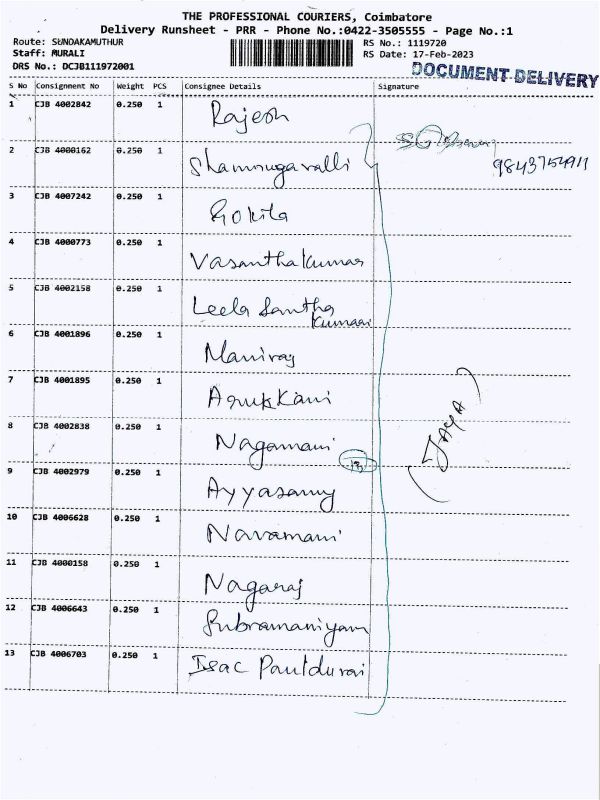 THE PROFESSIONAL COURIERS, Coimbatore
Delivery Runsheet - PRR - Phone No.:0422-3505555 - Page No.:1
Route: SUNDAKAMUTHUR RS No.: 1119720
Staff: MURALI RS Date: 17-Feb-2023
DRS No.: DCJB111972001 DOCUMENT DELIVERY
S No Consignment No Weight PCS Consignee Details Signature
1 CJB 4002842 0.250 1 Rajesh
2 CJB 4000162 0.250 1 Shanmugavalli 9843754911
3 CJB 4007242 0.250 1 Gokila
4 CJB 4000773 0.250 1 Vasanthakumar
5 CJB 4002158 0.250 1 Leela Santha
Kumaari
6 CJB 4001896 0.250 1 Maniraj
7 CJB 4001895 0.250 1 Arukkani
8 CJB 4002838 0.250 1 Nagamani
13
(JAYA)
9 CJB 4002979 0.250 1 Ayyasamy
10 CJB 4006628 0.250 1 Navamani
11 CJB 4000158 0.250 1 Nagaraj
12 CJB 4006643 0.250 1 Subramaniyam
13 CJB 4006703 0.250 1 Isac Pauldurai